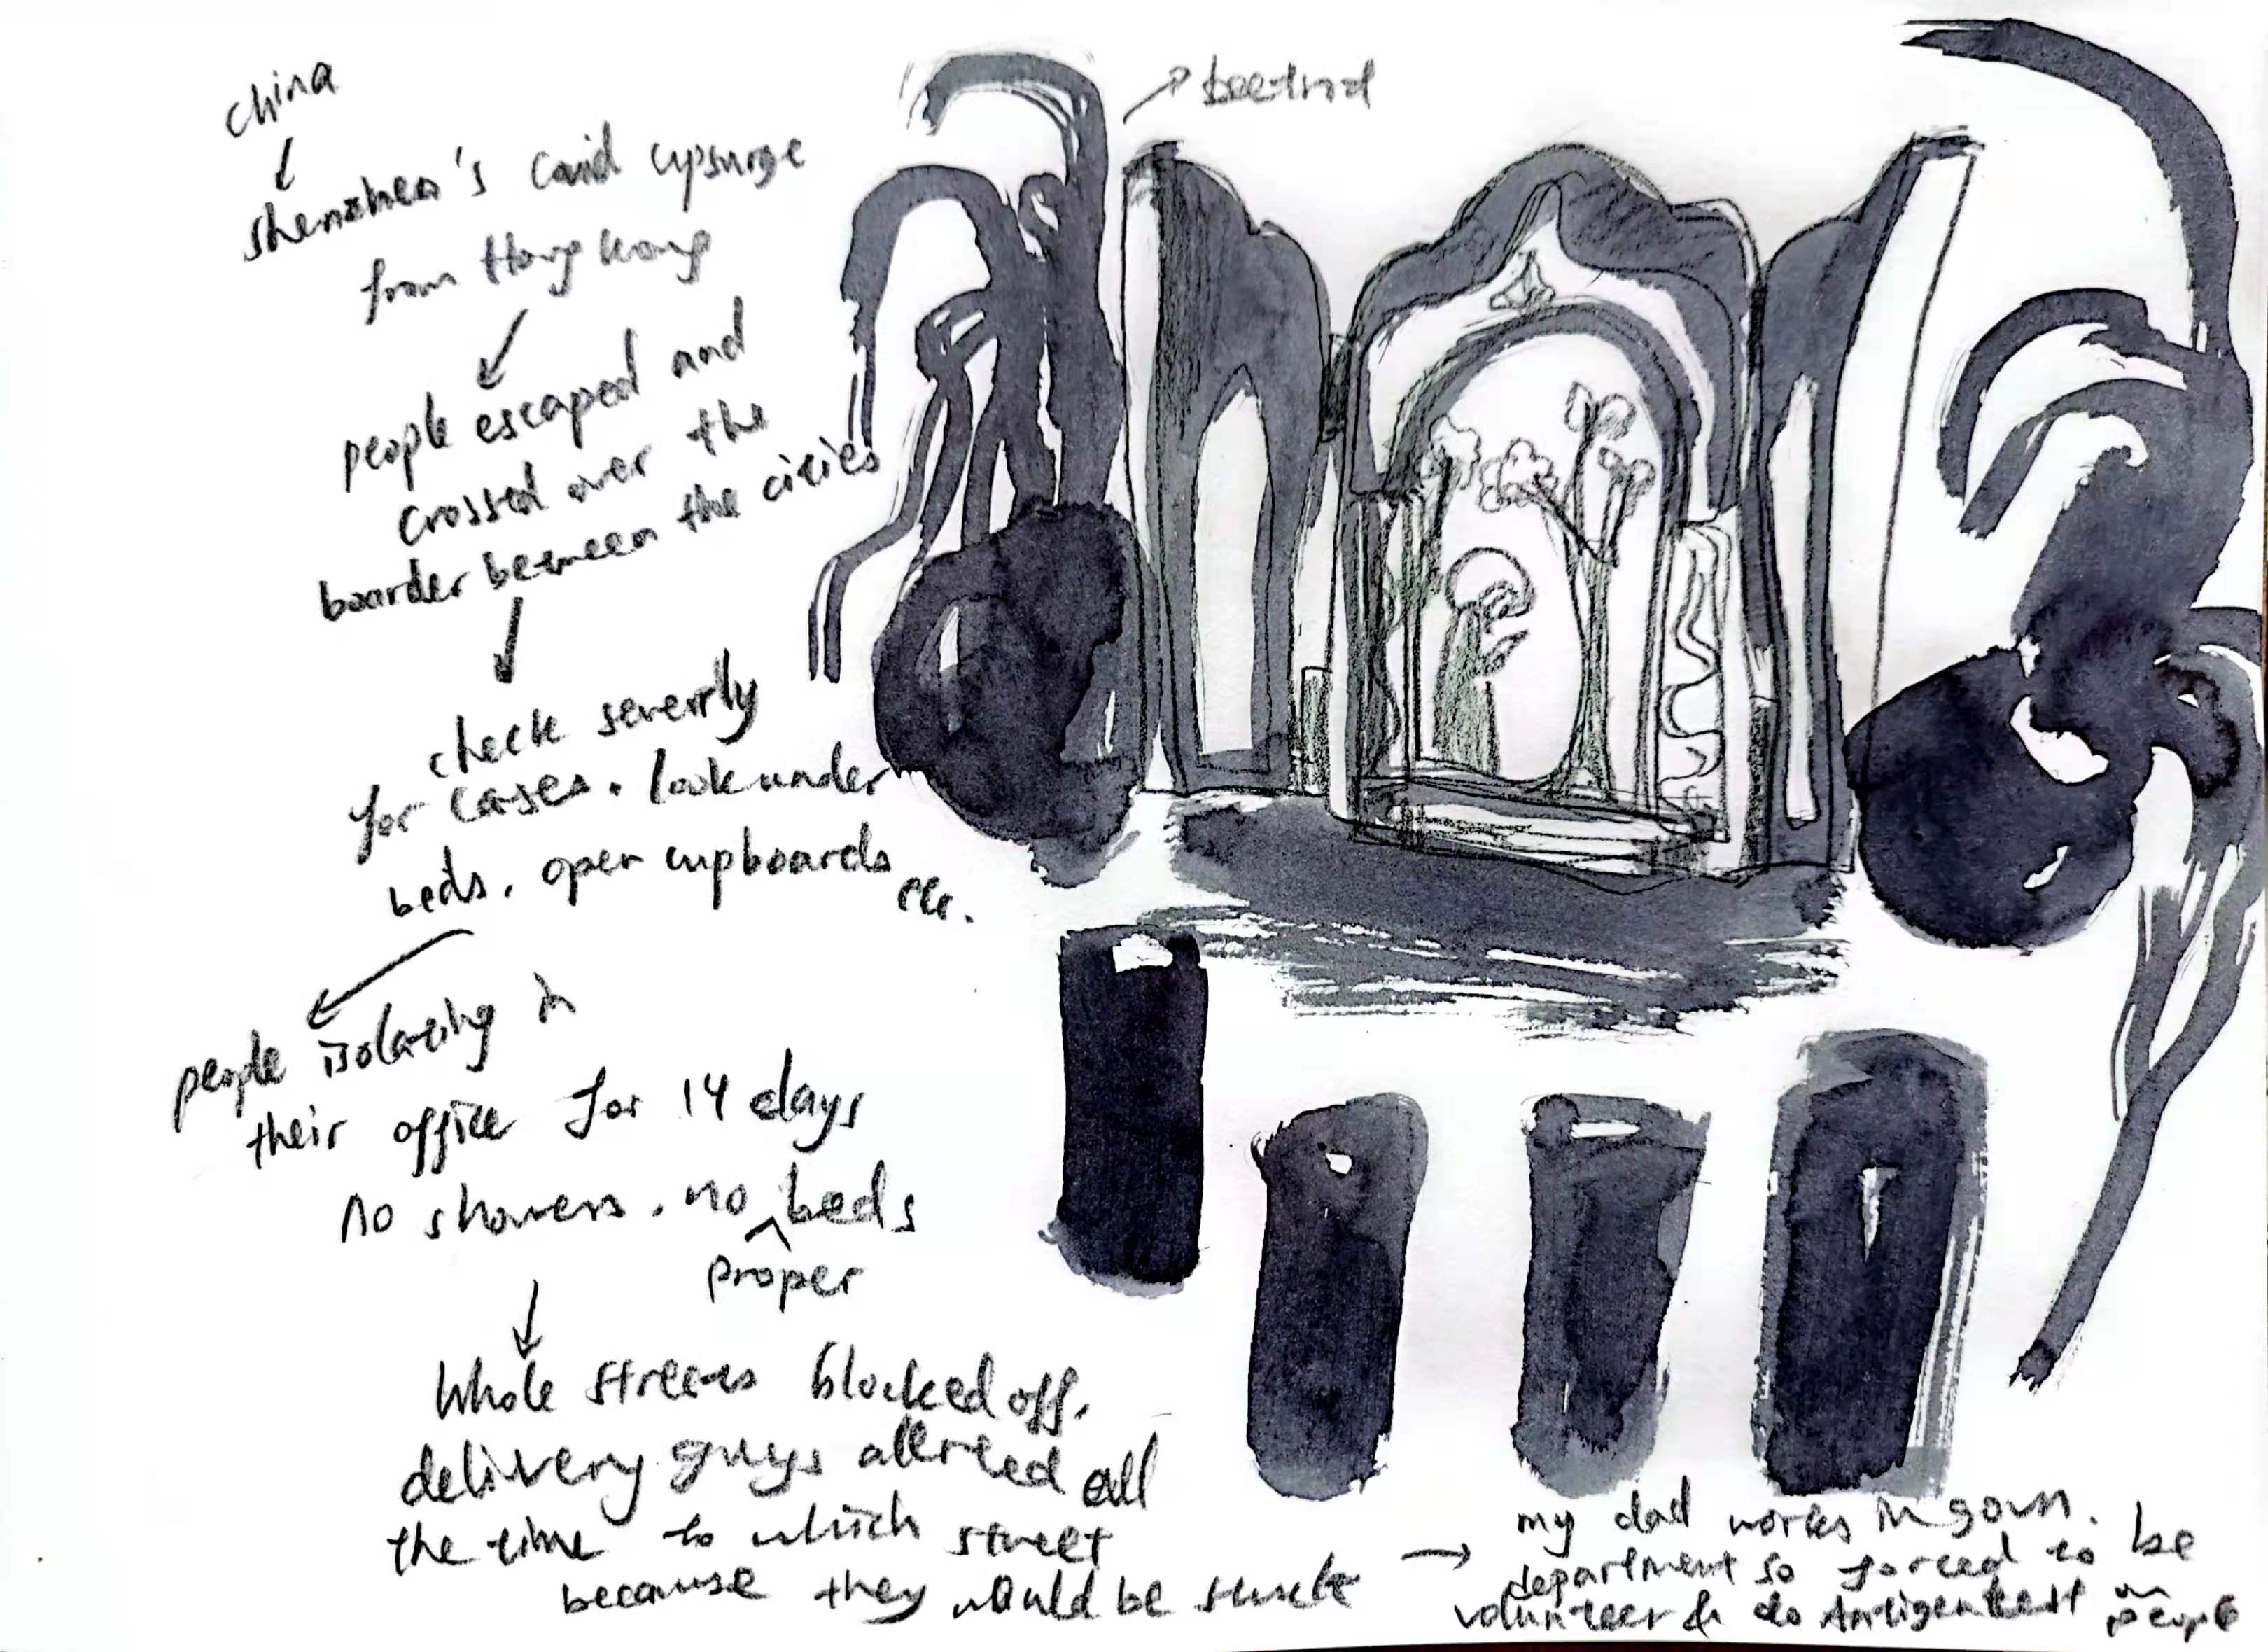 china
shenzhen's covid upsurge
from Hong Kong
people escaped and
crossed over the
boarder between the cities
check severly
for cases. look under
beds. open cupboards
etc.
people isolating in
their office for 14 days
no showers. no beds
proper
Whole streets blocked off.
delivery guys allerted all
the time to which street
because they would be stuck
my dad works in govn.
department so forced to be
volunteer & do Antigen test on
people